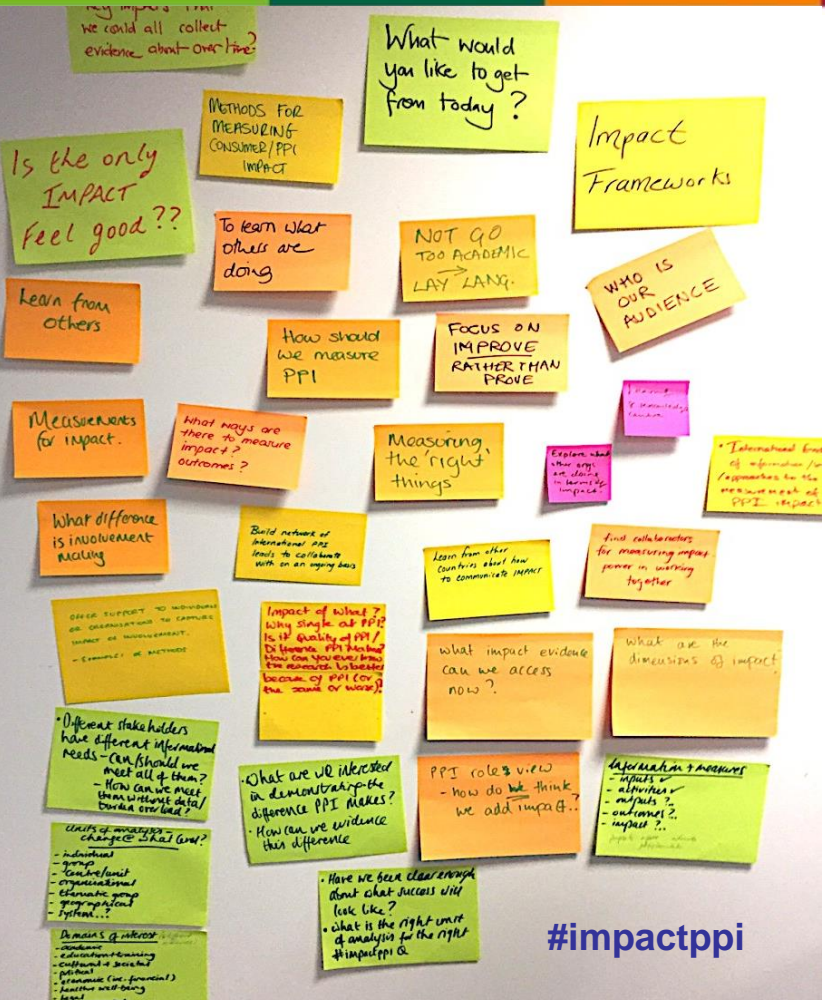 we could all collect
evidence about over time?
What would
you like to get
from today?
METHODS FOR
MEASURING
CONSUMER/PPI
IMPACT
Impact
Frameworks
Is the only
IMPACT
Feel good??
To learn what
others are
doing
NOT GO
TOO ACADEMIC
→
LAY LANG.
WHO IS
OUR
AUDIENCE
Learn from
others
How should
we measure
PPI
FOCUS ON
IMPROVE
RATHER THAN
PROVE
Measurements
for impact.
What ways are
there to measure
impact?
outcomes?
Measuring
the 'right'
things
Explore what
other orgs
are doing
in terms of
impact.
• International
of information
/approaches to the
measurement of
PPI impact
What difference
is involvement
making
Build network of
International PPI
leads to collaborate
with on an ongoing basis
Learn from other
countries about how
to communicate IMPACT
find collaborators
for measuring impact.
power in working
together
OFFER SUPPORT TO INDIVIDUALS
OR ORGANISATIONS TO CAPTURE
IMPACT OF INVOLVEMENT.
- EXAMPLES OF METHODS
Impact of What?
Why single out PPI?
Is it Quality of PPI/
Difference PPI Makes?
How can you ever know
the research is better
because of PPI (or
the same or worse)?
what impact evidence
can we access
now?
what are the
dimensions of impact
• Different stakeholders
have different informational
needs - can/should we
meet all of them?
- How can we meet
them without data/
burden overload?
• What are we interested
in demonstrating - the
difference PPI makes?
• How can we evidence
this difference
PPI roles view
- how do we think
we add impact..?
Information + measures
- inputs ✓
- activities ✓
- outputs ?..
- outcomes ?..
- impact ?..
Units of analysis -
change @ what level?
- individual
- group
- centre/unit
- organisational
- thematic group
- geographical
- system...?
• Have we been clear enough
about what success will
look like?
• What is the right unit
of analysis for the right
#impactppi Q
Domains of interest
- academic
- education + training
- cultural + societal
- political
- economic (inc. financial)
- health + well-being
- legal
#impactppi